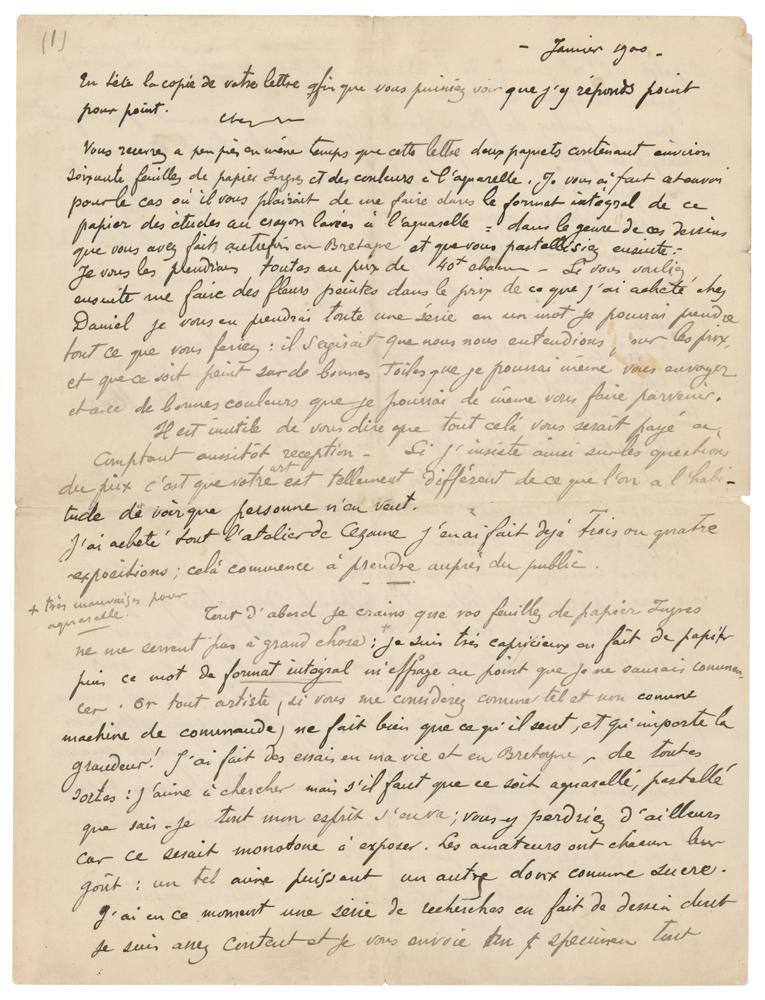 (1)
- Janvier 1900 -
En tête la copie de votre lettre afin que vous puissiez voir que j'y réponds point
pour point.
Vous recevrez a peu près en même temps que cette lettre deux paquets contenant environ
soixante feuilles de papier Ingres et des couleurs à l'aquarelle. Je vous ai fait cet envoi
pour le cas où il vous plairait de me faire dans le format intégral de ce
papier des études au crayon lavées à l'aquarelle = dans le genre de ces dessins
que vous avez faits autrefois en Bretagne et que vous pastellisiez ensuite :-
Je vous les prendrais toutes au prix de 40f chacun - Si vous vouliez
ensuite me faire des fleurs peintes dans le prix de ce que j'ai acheté chez
Daniel je vous en prendrai toute une série en un mot je pourrai prendre
tout ce que vous feriez : il s'agirait que nous nous entendions sur les prix,
et que ce soit peint sur de bonnes Toiles que je pourrai même vous envoyer
et avec de bonnes couleurs que je pourrai de même vous faire parvenir.
Il est inutile de vous dire que tout celà vous serait payé au
Comptant aussitôt reception - Si j'insiste ainsi sur les questions
du prix c'est que votre art est tellement différent de ce que l'on a l'habi-
tude de voir que personne n'en veut.
J'ai acheté tout l'atelier de Cezanne j'en ai fait déjà trois ou quatre
expositions ; celà commence à prendre auprès du public.
+ très mauvaises pour
aquarelle.
Tout d'abord je crains que vos feuilles de papier Ingres
ne me servent pas à grand chose : + je suis très capricieux en fait de papier
puis ce mot de format intégral m'effraye au point que je ne saurais commen-
cer. Or tout artiste, (si vous me considérez comme tel et non comme
machine de commande) ne fait bien que ce qu'il sent, et qu'importe la
grandeur! J'ai fait des essais en ma vie et en Bretagne, de toutes
sortes : j'aime à chercher mais s'il faut que ce soit aquarellé, pastellé
que sais-je tout mon esprit s'en va ; vous y perdriez d'ailleurs
car ce serait monotone à exposer. Les amateurs ont chacun leur
goût : un tel aime puissant un autre doux comme sucre.
J'ai en ce moment une série de recherches en fait de dessin dont
je suis assez content et je vous envoie un specimen tout